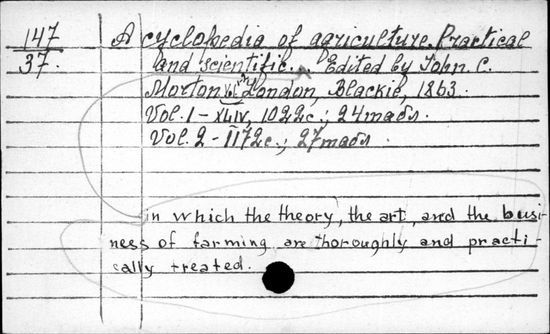 147
37.
A cyclopedia of agriculture. Practical
and scientific. Edited by John. C.
Morton London, Blackie, 1863.
Vol. 1 - XLIV, 1022c.; 24 mads.
Vol. 2 - II 72c.; 27 mads.
in which the theory, the art, and the busi-
ness of farming are thoroughly and practi-
cally treated.